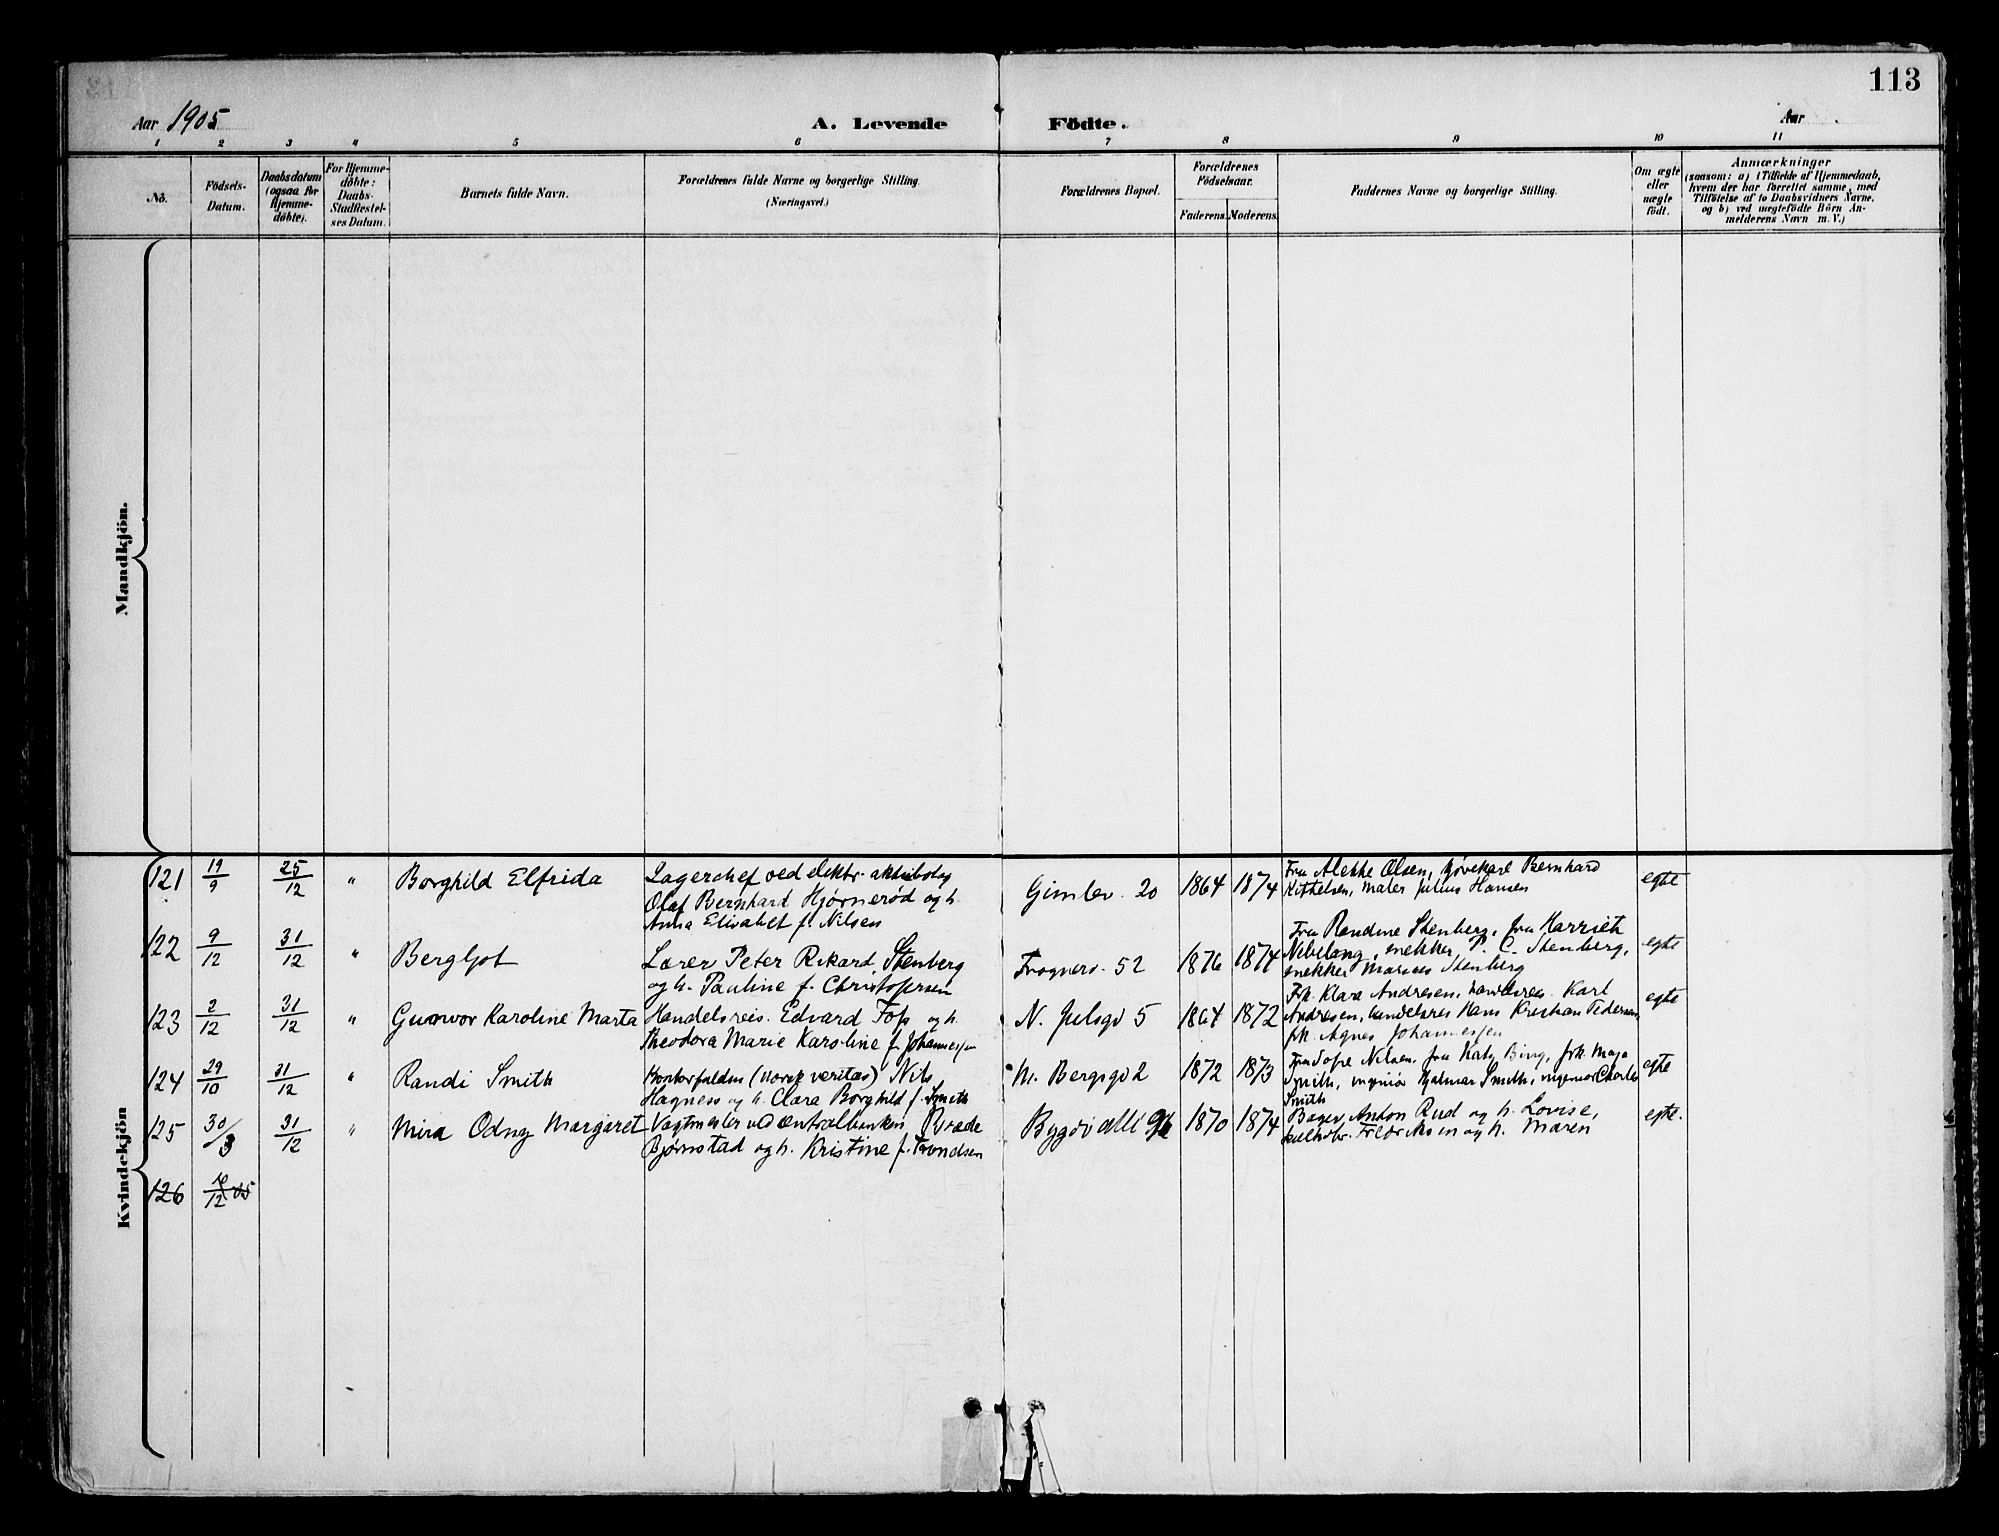 113
Aar 1905
A. Levende Födte.
Aar
1 2 3 4 5 6 7 8 9 10 11
No.
Födsels-
Datum.
Daabsdatum
(ogsaa for
Hjemme-
døbte).
For Hjemme-
døbte:
Daabs-
Stadfæstel-
ses Datum.
Barnets fulde Navn.
Forældrenes fulde Navne og borgerlige Stilling.
(Næringsvei.)
Forældrenes Bopæl.
Forældrenes
Födselsaar.
Faderens. Moderens.
Faddernes Navne og borgerlige Stilling.
Om ægte
eller
uægte
født.
Anmærkninger
(saasom: a) i Tilfælde af Hjemmedaab,
hvem der har forrettet samme, med
Tilföielse af to Daabsvidners Navne,
og b) ved uægtefödte Börn An-
melderens Navn m. V.)
Mandkjön.
Kvindekjön
121 19/9 25/12 " Borghild Elfrida
Lagerchef ved elektr. aktiebolag
Olaf Bernhard Hjørnerød og h.
Anna Elisabet f. Nilsen
Gimlev. 20 1864 1874
Fru Alekke Olsen, Bernhard
Kittelsen, maler Julius Hansen
egte
122 9/12 31/12 " Bergljot
Lærer Peter Rikard Stenberg
og h. Pauline f. Christofersen
Frognerv. 52 1876 1874
Fru Randine Stenberg, fru Harriet
snekker P. C. Stenberg,
snekker Marius Stenberg
egte
123 2/12 31/12 " Gunvor Karoline Marta
Handelsreis. Edvard Foss og h.
Theodora Marie Karoline f. Johannessen
N. Julsgd 5 1864 1872
Frk. Klara Andresen, handelsreis. Karl
Andresen, handelsreis Hans Kristian Pedersen,
frk. Agnes Johannessen
egte
124 29/10 31/12 " Randi Smith
Kontorfuldm (norsk veritas) Nils
Hagness og h. Clara Borghild f. Smith
M. Bergsgd 2 1872 1873
Fru Sofie Nilsen, fru Katy Bing, frk. Maja
Smith, ingeniør Hjalmar Smith, ingeniør Charles
Smith
egte
125 30/3 31/12 " Mira Odny Margaret
Vagtmester ved Centralbanken
Bjørnstad og h. Kristine f. Trondsen
Bygdø allé 1870 1874
Bager Anton Rud og h. Lovise,
Fredriksen og h. Maren
egte.
126 16/12 05